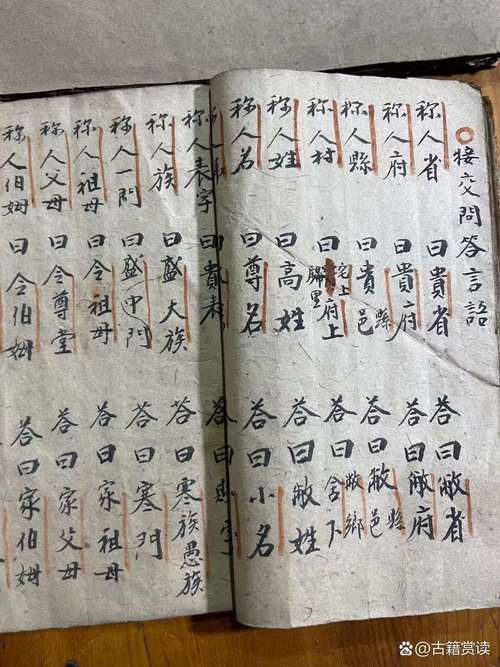 接交問答言語
称人省 曰貴省 答曰敝省
称人府 曰貴府 答曰敝府
称人縣 曰貴縣邑 答曰敝縣邑
称人村 曰宅上府上 歸里 答曰舍下敝鄉
称人姓 曰高姓 答曰敝姓
称人名 曰尊名 答曰小名
称人表字 曰貴表 答曰 字
称人族 曰盛大族 答曰寒族愚族
称人一門 曰盛中門 答曰寒門
称人祖母 曰令祖母 答曰家祖母
称人父母 曰令尊堂 答曰家父母
称人伯姆 曰令伯姆 答曰家伯姆
古籍赏读